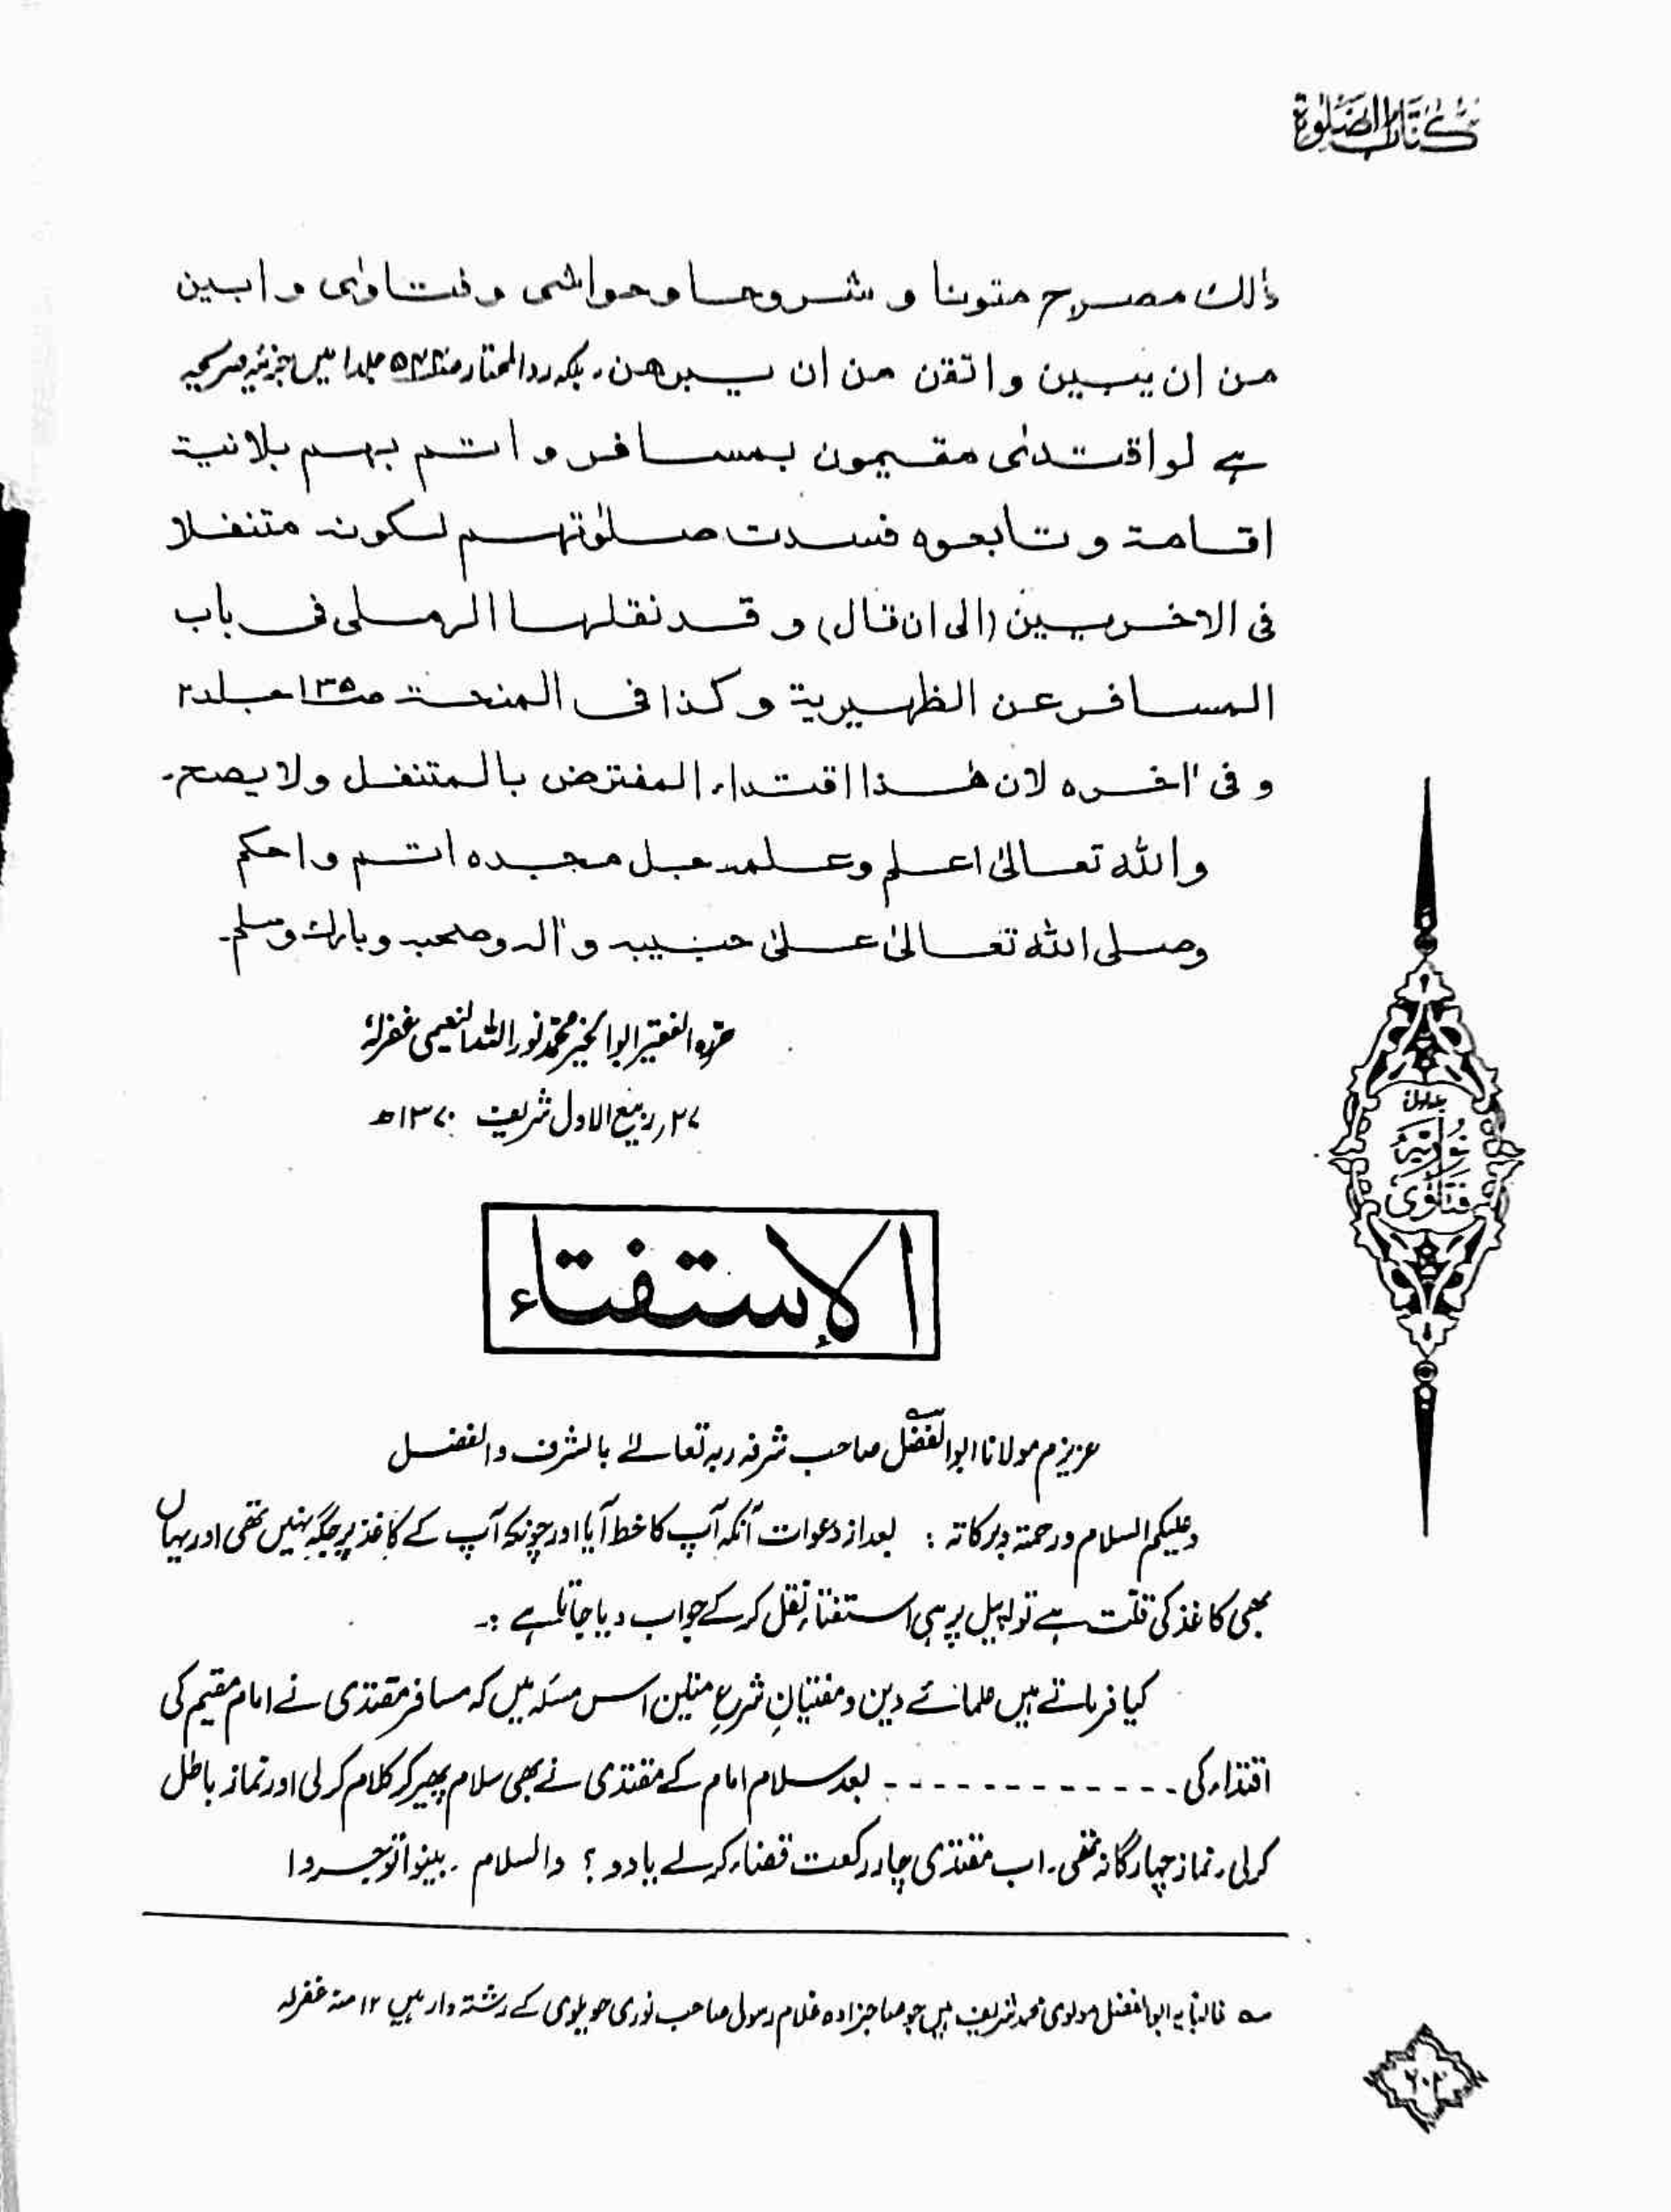 كتاب الصلوة
ذٰلك مصرح متونا و شروحا وحواشی و فتاوٰی و ابین
من ان یبین و اتقن من ان یبرهن۔ بلکہ ردالمحتار جلد۱ میں جزئیہ صریحہ
ہے لو اقتدٰی مقیمون بمسافر و اتم بهم بلانیة
اقامة و تابعوه فسدت صلوٰتهم لکونہ متنفلا
فی الاخریین (الی ان قال) و قد نقلها الرملی فی باب
المسافر عن الظهیریة و کذا فی المنحة ص۱۳۵ جلد۲
و فی اٰخره لان هٰذا اقتداء المفترض بالمتنفل ولا یصح۔
والله تعالیٰ اعلم وعلمہ جل مجده اتم واحکم
وصلی الله تعالیٰ علیٰ حبیبہ و اٰلہ وصحبہ وبارك وسلم۔
حررہ الفقیر ابوالخیر محمد نور اللہ النعیمی غفرلہٗ
۲۷؍ ربیع الاول شریف ۱۳۷۰ھ
الإستفتاء
عزیزم مولانا ابوالفضل صاحب شرفہ ربہ تعالےٰ بالشرف والفضل
وعلیکم السلام ورحمتہ وبرکاتہ : بعد از دعوات آنکہ آپ کا خط آیا اور چونکہ آپ کے کاغذ پر جگہ نہیں تھی اور یہاں
بھی کاغذ کی قلت ہے تو لہٰذا پر ہی استفتاء نقل کرکے جواب دیا جاتا ہے :۔
کیا فرماتے ہیں علمائے دین و مفتیانِ شرعِ متین اس مسئلہ میں کہ مسافر مقتدی نے امام مقیم کی
اقتداء کی ۔۔۔۔۔۔۔۔۔۔۔۔ بعد سلام امام کے مقتدی نے بھی سلام پھیر کر کلام کرلی اور نماز باطل
کرلی۔ نماز چہارگانہ تھی۔ اب مقتدی چار رکعت قضاء کرلے یا دو ؟ والسلام ۔ بینوا توجروا
جلد اول
نوریہ
فتاویٰ
؎ غالباً یہ ابوالفضل مولوی محمد شریف ہیں جو صاحبزادہ غلام رسول صاحب نوری حویلوی کے رشتہ دار ہیں ۱۲ منہ غفرلہ